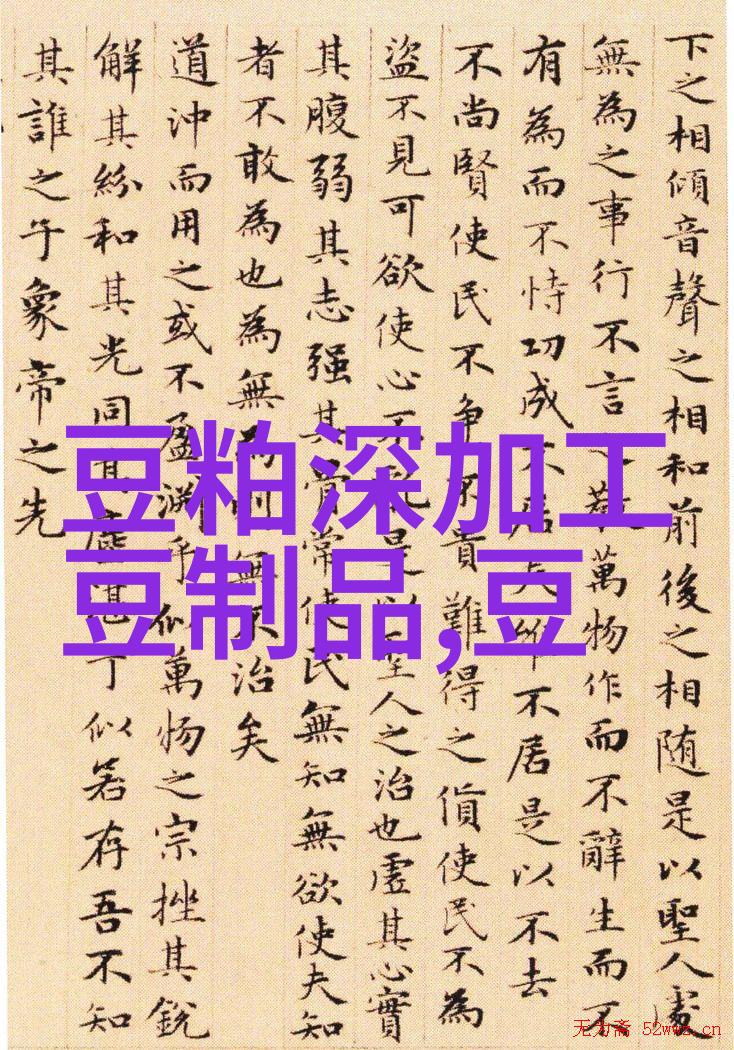 下之相傾音聲之相和前後之相随是以聖人處
無為之事行不言教萬物作而不辭生而不
有為而不恃功成不居夫唯不居是以不去
不尚賢使民不争不貴難得之貨使民不為
盜不見可欲使心不是以聖人之治也虛其心實
其腹弱其志强其骨常使民無知無欲使夫知
者不敢為也為無為則無不治矣
道沖而用之或不盈渊乎似萬物之宗挫其銳
解其紛和其光同其塵湛乎似若存吾不知
其誰之子象帝之先
豆粕深加工
豆制品,豆
无为斋 52wwz.cn